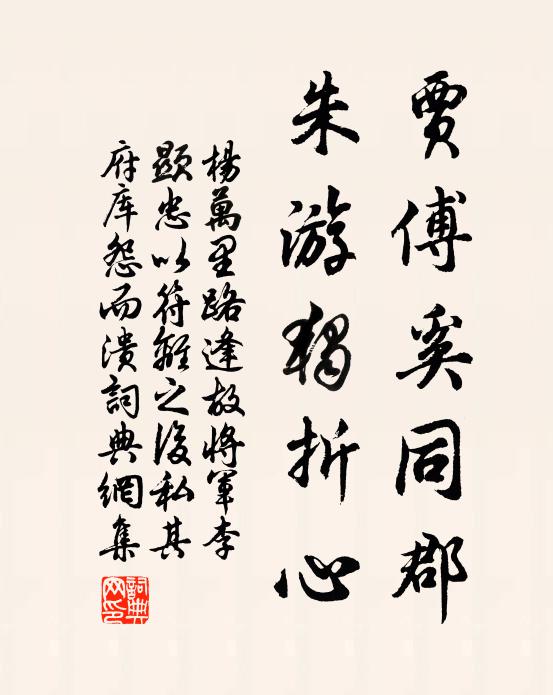 賈傅奚同郡
朱游獨折心
楊萬里路逢故將軍李
顯忠以符離之役私其
府庫怨而潰詞典網集
詞典
网印